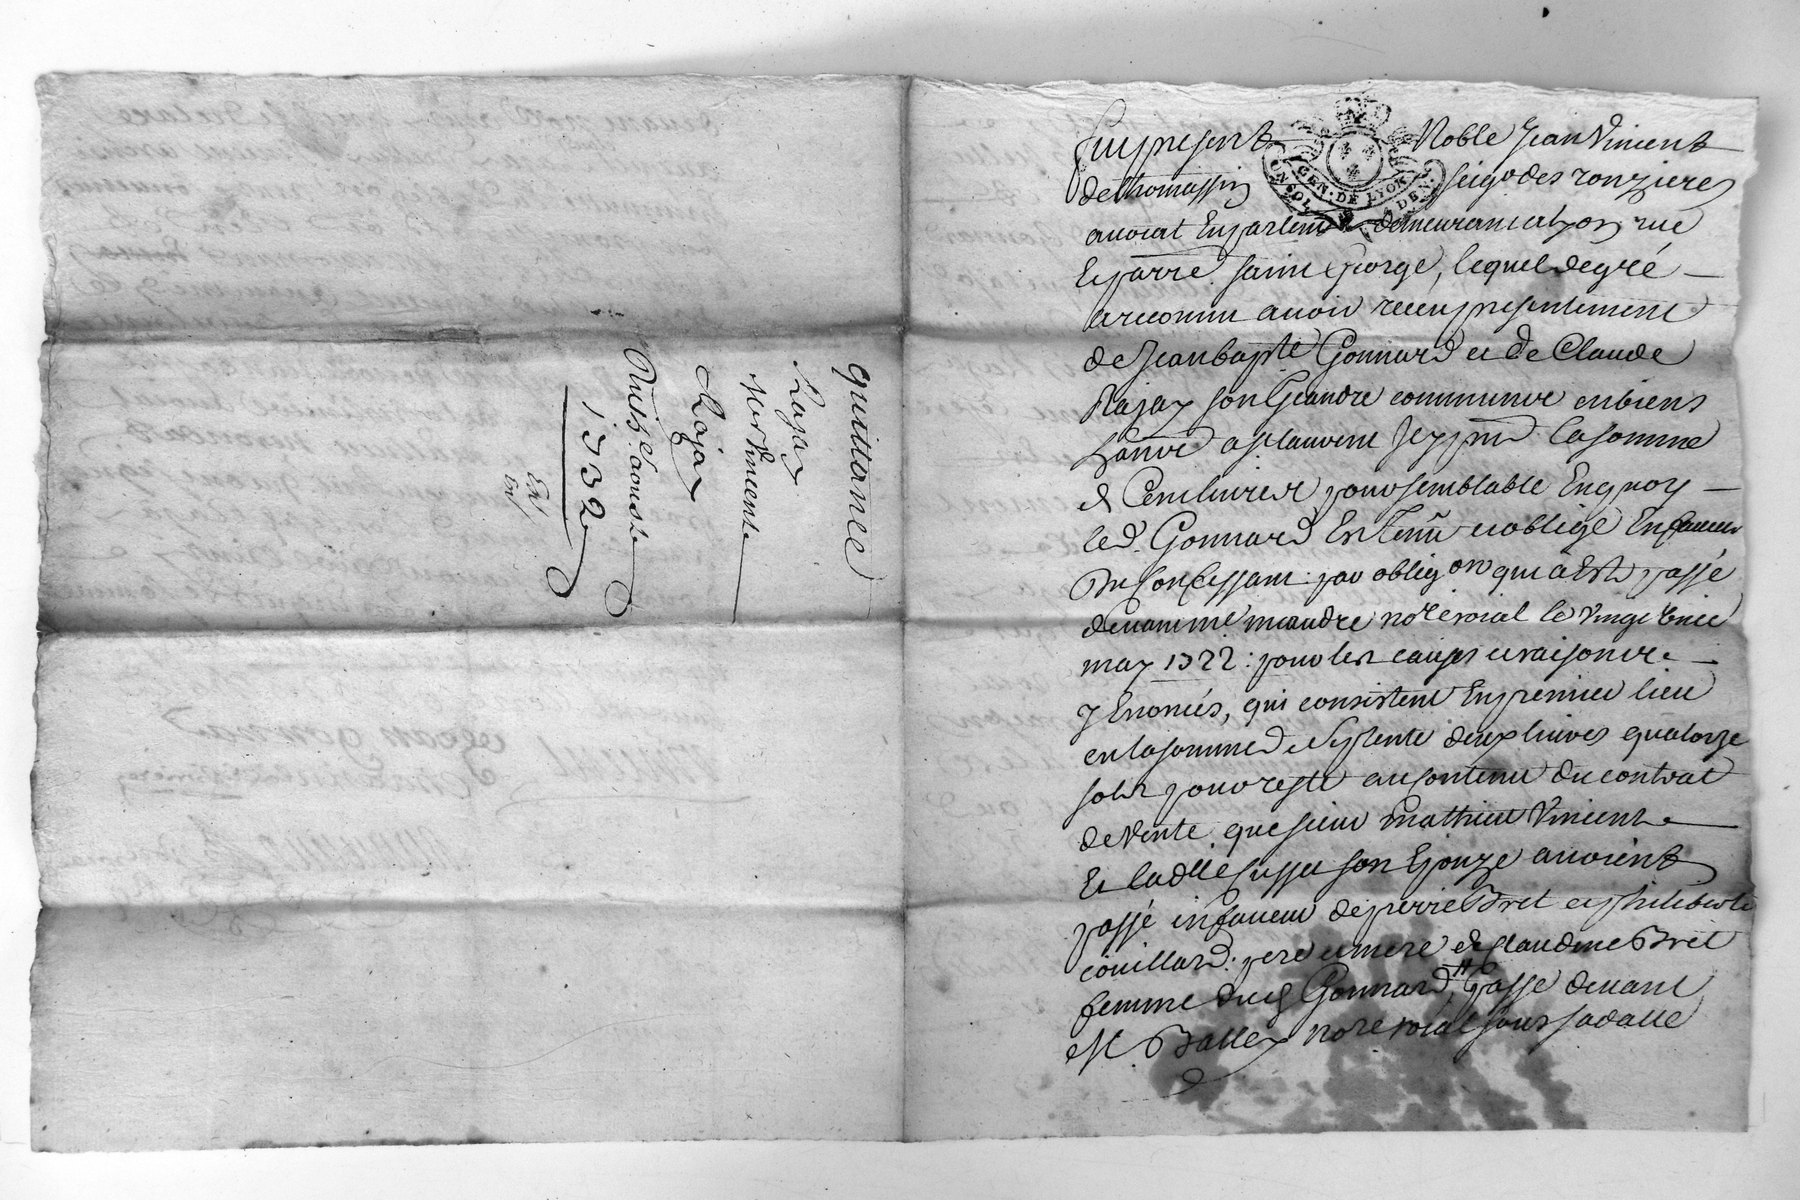 quittance
Rajay
Mr Vincent
Rajay
Du 13e aoust
1732
Fut present Noble Jean Vincent
GEN. DE LYON
UN SOL DEN.
de thomassin seigr des ronzieres
avocat En parlemt demeurant a Lyon rue
Et parre saint George, lequel de gré
a reconnu avoir receu presentement
de Jean bapte Gonnard et de Claude
Rajay son Geandre communs en biens
la somme
de Cent livres pour semblable En quoy
led. Gonnard Est tenu et obligé En faveur
Du Confessant par obligon qui a Esté passé
devant me meandre nore roial le vingt
may 1722: pour les causes et raisons
y Enoncés, qui consistent En premier lieu
en la somme de septente deux livres quatorze
sols pour reste au contenu du contrat
de Vente que sieur Mathieu Vincent
Et la dlle son Epouze avoient
passé en faveur de pierre Bret et philiberte
couillard pere et mere de Claudine Bret
femme dud Gonnard, passé devant
Me Ballex nore roial sous sa datte